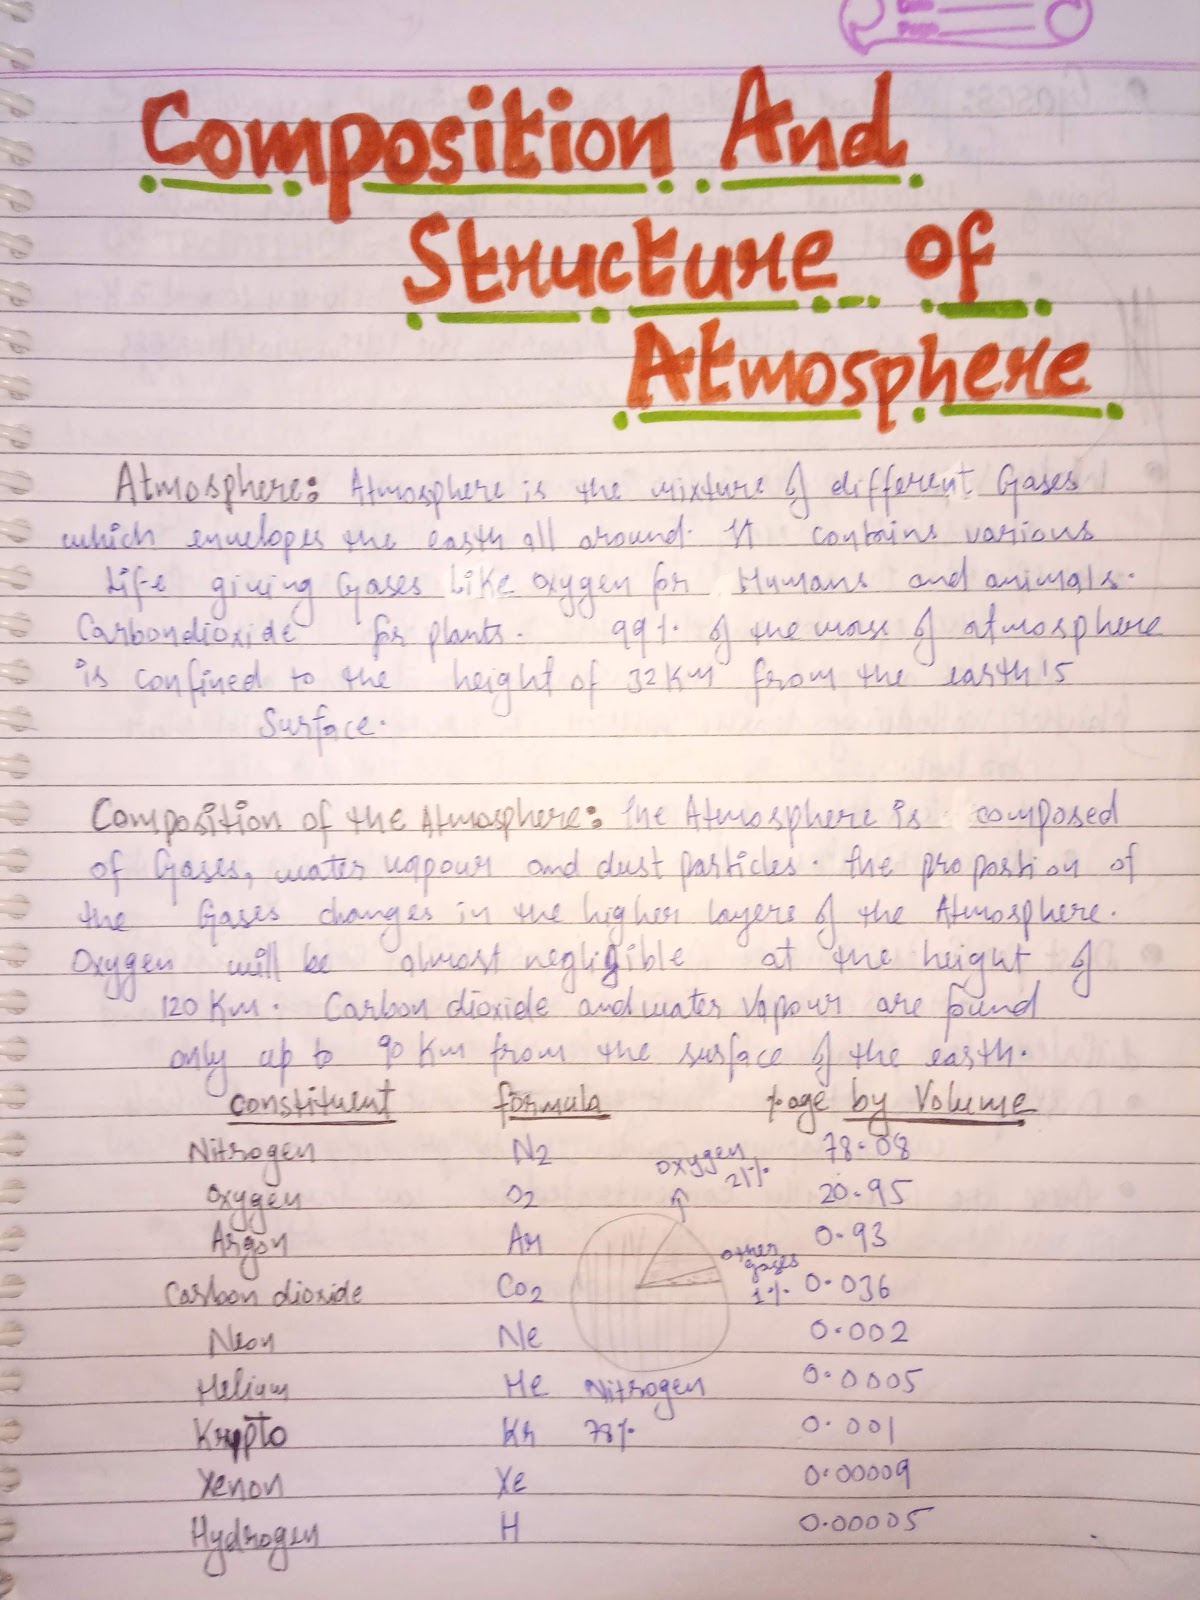 Composition And
Structure of
Atmosphere
Atmosphere: Atmosphere is the mixture of different Gases
which envelopes the earth all around. It contains various
life giving Gases like oxygen for Humans and animals.
Carbondioxide for plants. 99% of the mass of atmosphere
is confined to the height of 32 Km from the earth's
Surface.
Composition of the Atmosphere: The Atmosphere is composed
of Gases, water vapour and dust particles. The proportion of
the Gases changes in the higher layers of the Atmosphere.
Oxygen will be almost negligible at the height of
120 Km. Carbon dioxide and water Vapour are found
only up to 90 Km from the surface of the earth.
constituent formula %age by Volume
Nitrogen N2 78.08
oxygen 21%
Oxygen O2 20.95
Argon Ar 0.93
other gases 1%
Carbon dioxide Co2 0.036
Neon Ne 0.002
Helium He 0.0005
Nitrogen 78%
Krypto Kr 0.001
Xenon Xe 0.00009
Hydrogen H 0.00005